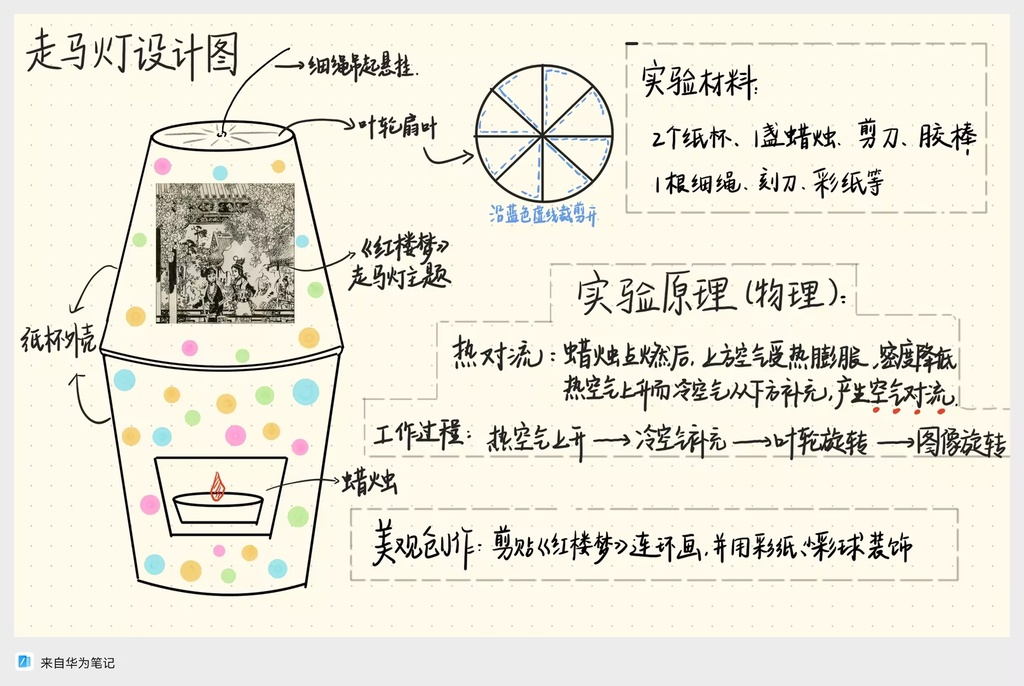 走马灯设计图
细绳吊起悬挂.
叶轮扇叶
沿蓝色虚线裁剪开
实验材料:
2个纸杯、1盏蜡烛、剪刀、胶棒
1根细绳、刻刀、彩纸等
《红楼梦》
走马灯主题
纸杯外壳
蜡烛
实验原理(物理):
热对流:蜡烛点燃后,上方空气受热膨胀,密度降低
热空气上升而冷空气从下方补充,产生空气对流.
工作过程:热空气上升→冷空气补充→叶轮旋转→图像旋转
美观创作:剪贴《红楼梦》连环画,并用彩纸、小彩球装饰
来自华为笔记